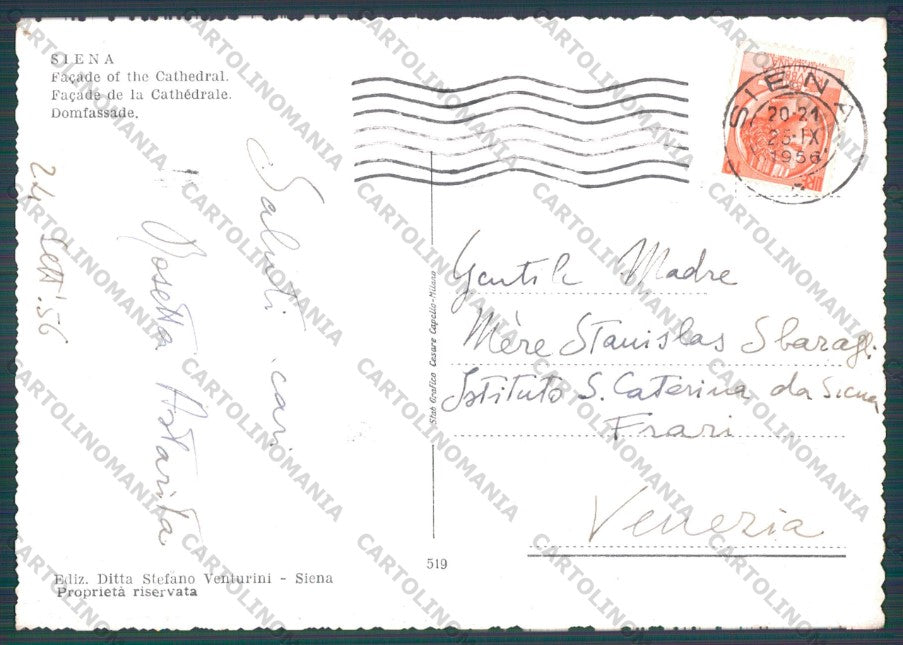 SIENA
Façade of the Cathedral.
Façade de la Cathédrale.
Domfassade.
SIENA
20-21
25·IX
1956
24 Sett. '56
Saluti cari
Rosetta
Gentile Madre
Mère Stanislas Sbaragli
Istituto S. Caterina da Siena
Frari
Venezia
Stab Grafico Cesare Capello-Milano
519
Ediz. Ditta Stefano Venturini - Siena
Proprietà riservata
CARTOLINOMANIA